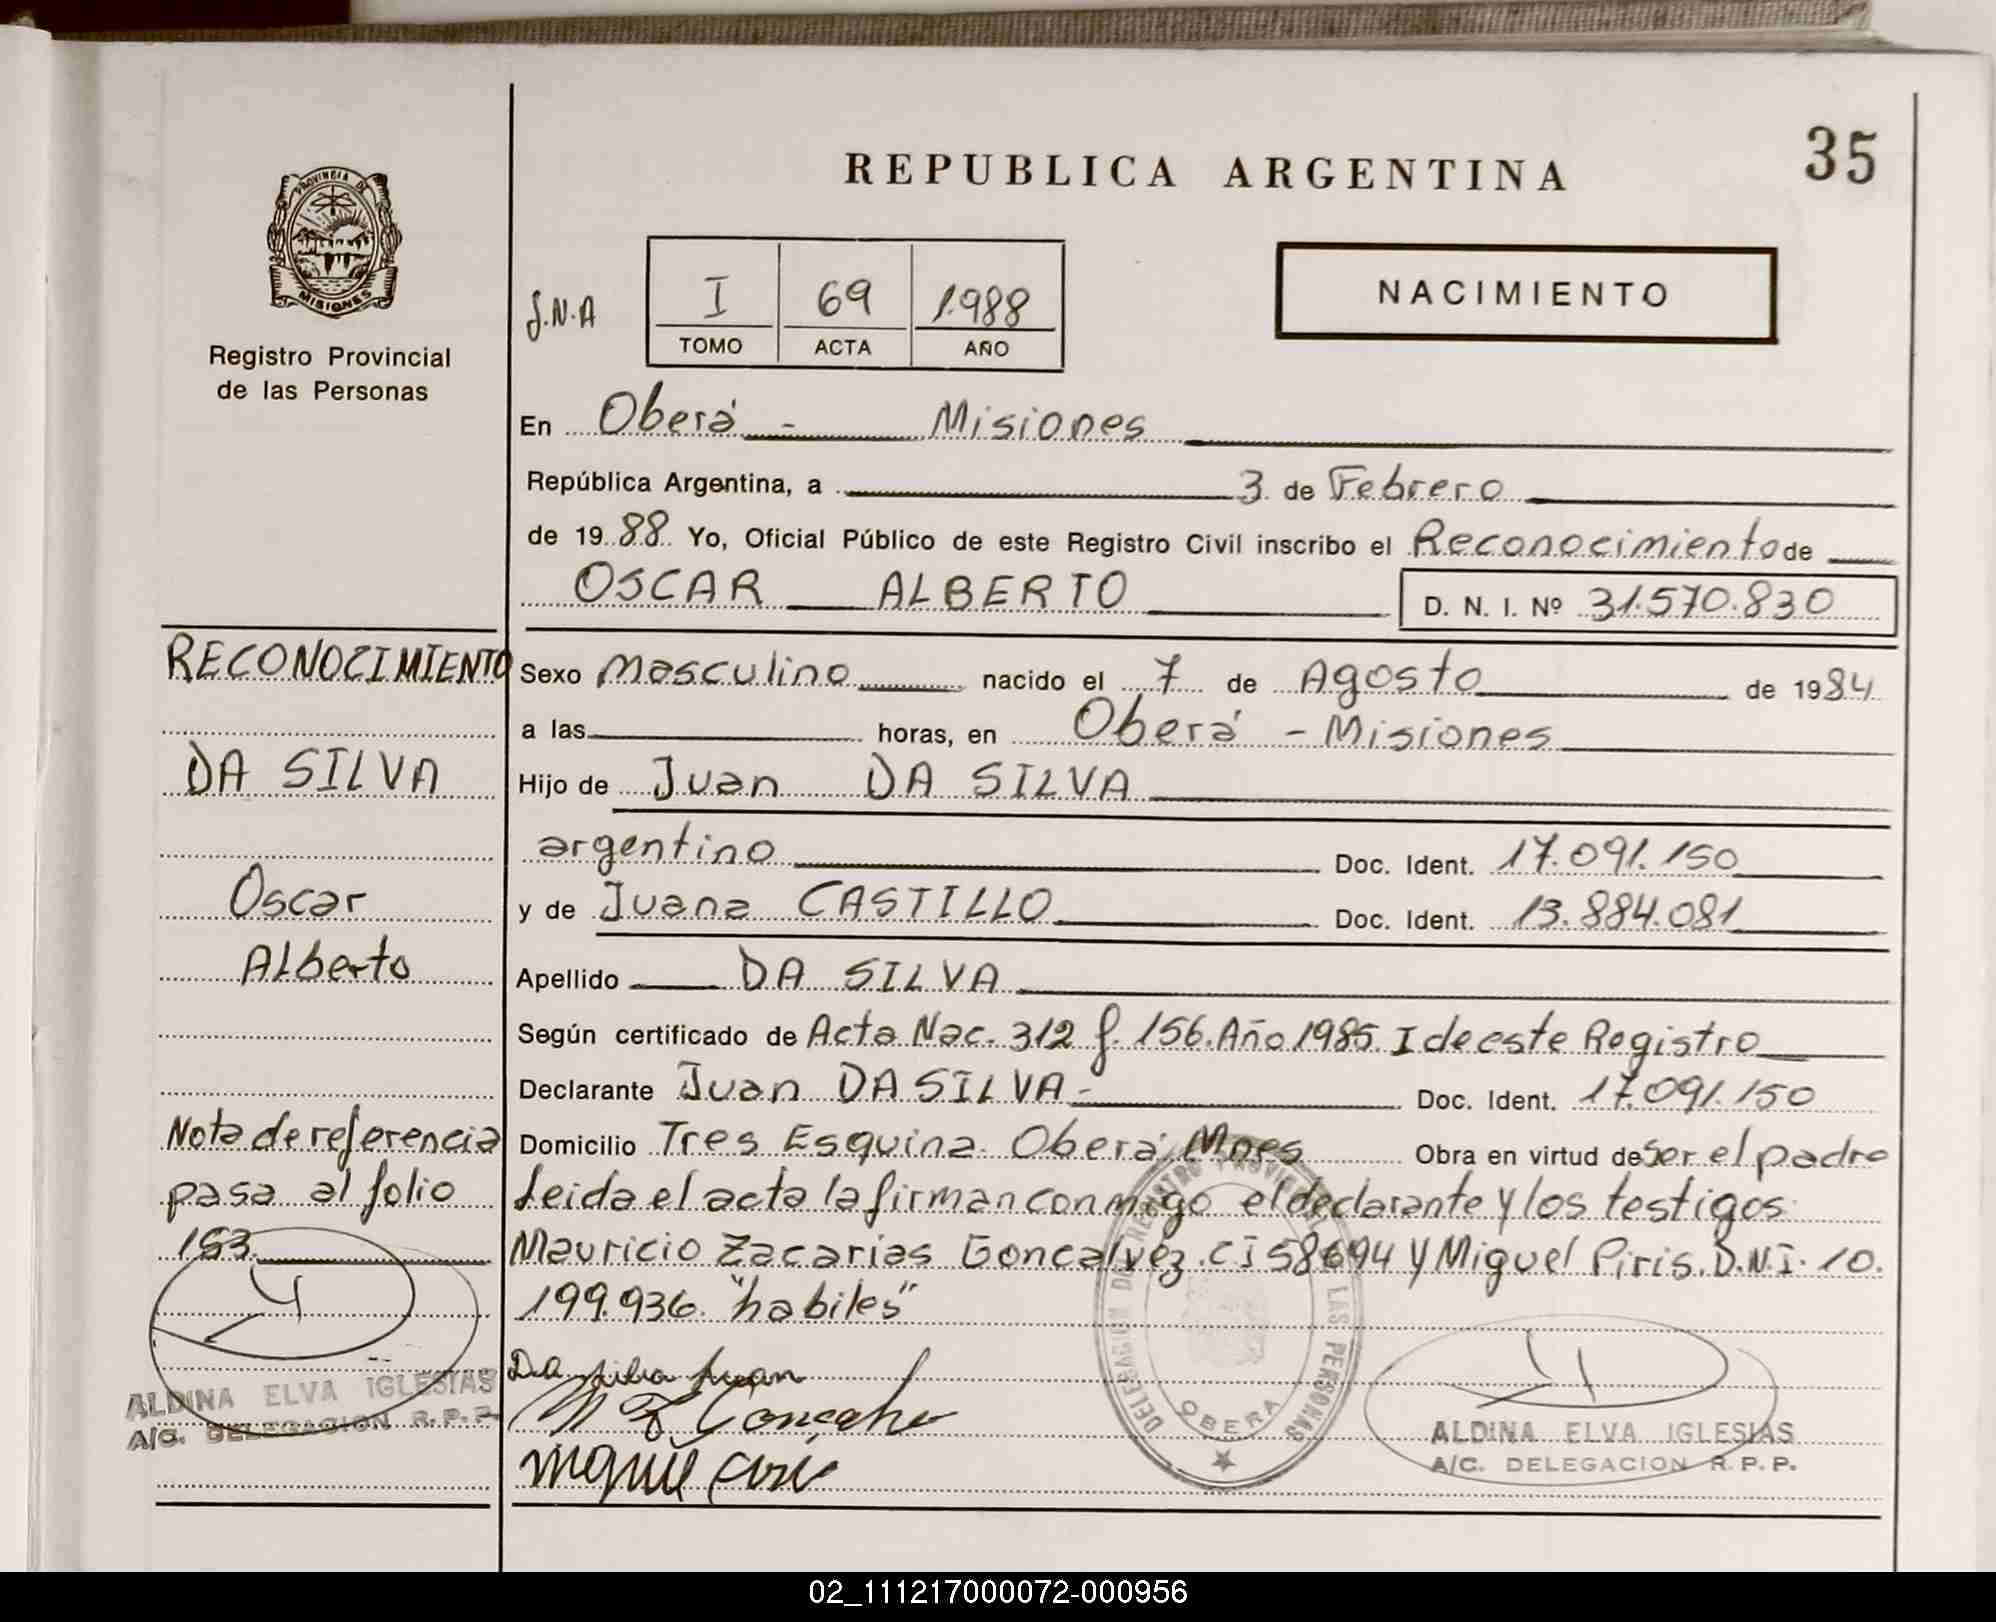 REPUBLICA ARGENTINA
35
PROVINCIA DE
MISIONES
Registro Provincial
de las Personas
I 69 1.988
TOMO ACTA AÑO
NACIMIENTO
En Oberá - Misiones
República Argentina, a 3 de Febrero
de 1988 Yo, Oficial Público de este Registro Civil inscribo el Reconocimiento de
OSCAR ALBERTO D. N. I. Nº 31.570.830
RECONOCIMIENTO
DA SILVA
Oscar
Alberto
Nota de referencia
pasa al folio
153.
ALDINA ELVA IGLESIAS
A/C. DELEGACION R.P.P.
Sexo Masculino nacido el 7 de Agosto de 1984
a las horas, en Oberá - Misiones
Hijo de Juan DA SILVA
argentino Doc. Ident. 17.091.150
y de Juana CASTILLO Doc. Ident. 13.884.081
Apellido DA SILVA
Según certificado de Acta Nac. 312 f. 156. Año 1985 I de este Registro
Declarante Juan DA SILVA- Doc. Ident. 17.091.150
Domicilio Tres Esquina. Oberá Mnes Obra en virtud de Ser el padre
Leida el acta la firman conmigo el declarante y los testigos
Mauricio Zacarias Goncalvez. C I 58694 y Miguel Piris. D.N.I. 10.
199.936. "habiles"
Da silva Juan
DELEGACION DEL REGISTRO PROVINCIAL DE LAS PERSONAS
OBERA
ALDINA ELVA IGLESIAS
A/C. DELEGACION R.P.P.
02_111217000072-000956